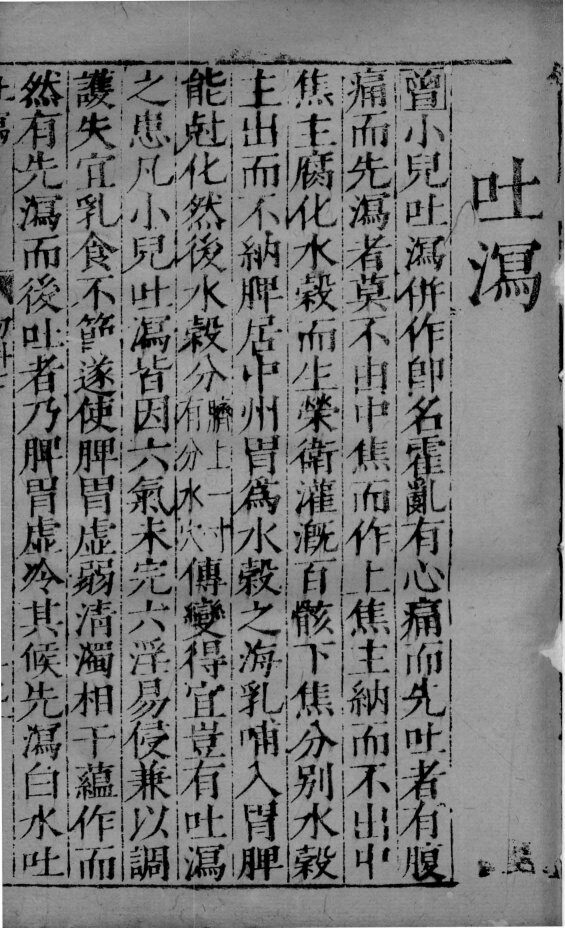 吐瀉
曾小兒吐瀉併作卽名霍亂有心痛而先吐者有腹
痛而先瀉者莫不由中焦而作上焦主納而不出中
焦主腐化水穀而生榮衛灌漑百骸下焦分別水穀
主出而不納脾居中州胃爲水穀之海乳哺入胃脾
能尅化然後水穀分臍上一寸有分水穴傳變得宜豈有吐瀉
之患凡小兒吐瀉皆因六氣未完六淫易侵兼以調
護失宜乳食不節遂使脾胃虛弱清濁相干蘊作而
然有先瀉而後吐者乃脾胃虛冷其候先瀉白水吐